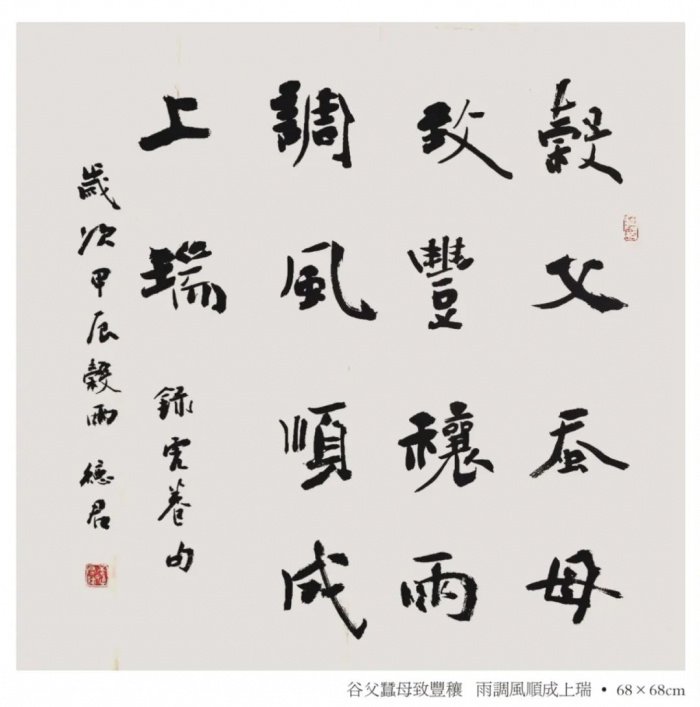 穀父蚕母
致豐穰雨
調風順成
上瑞
錄菴句
歲次甲辰穀雨 君
谷父蠶母致豐穰 雨調風順成上瑞 • 68×68cm